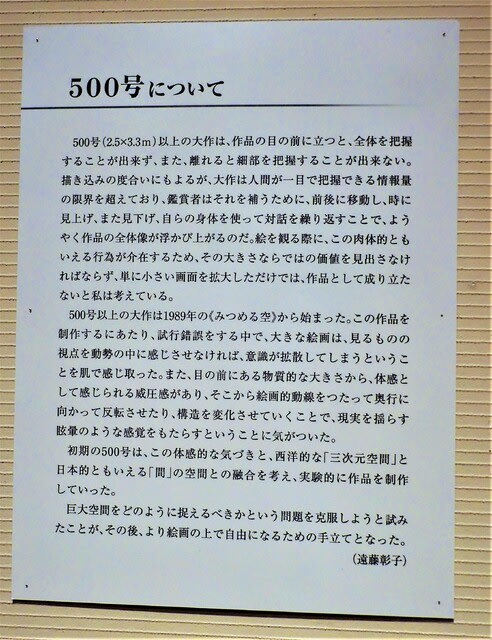 500号について
500号(2.5×3.3m)以上の大作は、作品の目の前に立つと、全体を把握
することが出来ず、また、離れると細部を把握することが出来ない。
描き込みの度合いにもよるが、大作は人間が一目で把握できる情報量
の限界を超えており、鑑賞者はそれを補うために、前後に移動し、時に
見上げ、また見下げ、自らの身体を使って対話を繰り返すことで、よう
やく作品の全体像が浮かび上がるのだ。絵を観る際に、この肉体的とも
いえる行為が介在するため、その大きさならではの価値を見出さなけ
ればならず、単に小さい画面を拡大しただけでは、作品として成り立た
ないと私は考えている。
500号以上の大作は1989年の《みつめる空》から始まった。この作品を
制作するにあたり、試行錯誤をする中で、大きな絵画は、見るものの
視点を動勢の中に感じさせなければ、意識が拡散してしまうというこ
とを肌で感じ取った。また、目の前にある物質的な大きさから、体感と
して感じられる威圧感があり、そこから絵画的動線をつたって奥行に
向かって反転させたり、構造を変化させていくことで、現実を揺らす
眩暈のような感覚をもたらすということに気がついた。
初期の500号は、この体感的な気づきと、西洋的な「三次元空間」と
日本的ともいえる「間」の空間との融合を考え、実験的に作品を制作
していった。
巨大空間をどのように捉えるべきかという問題を克服しようと試み
たことが、その後、より絵画の上で自由になるための手立てとなった。
(遠藤彰子)